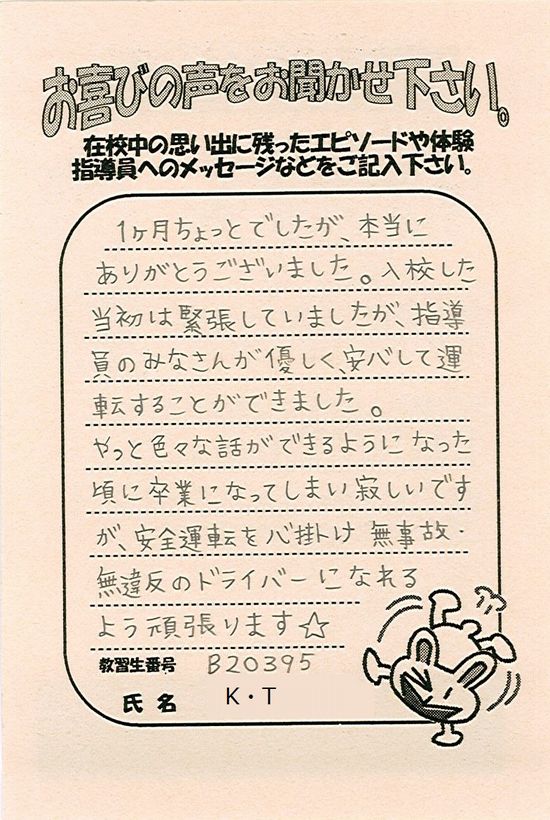 お喜びの声をお聞かせ下さい。
在校中の思い出に残ったエピソードや体験
指導員へのメッセージなどをご記入下さい。
1ヶ月ちょっとでしたが、本当に
ありがとうございました。入校した
当初は緊張していましたが、指導
員のみなさんが優しく、安心して運
転することができました。
やっと色々な話ができるようになった
頃に卒業になってしまい寂しいです
が、安全運転を心掛け 無事故・
無違反のドライバーになれる
よう頑張ります☆
教習生番号 B20395
氏名 K・T